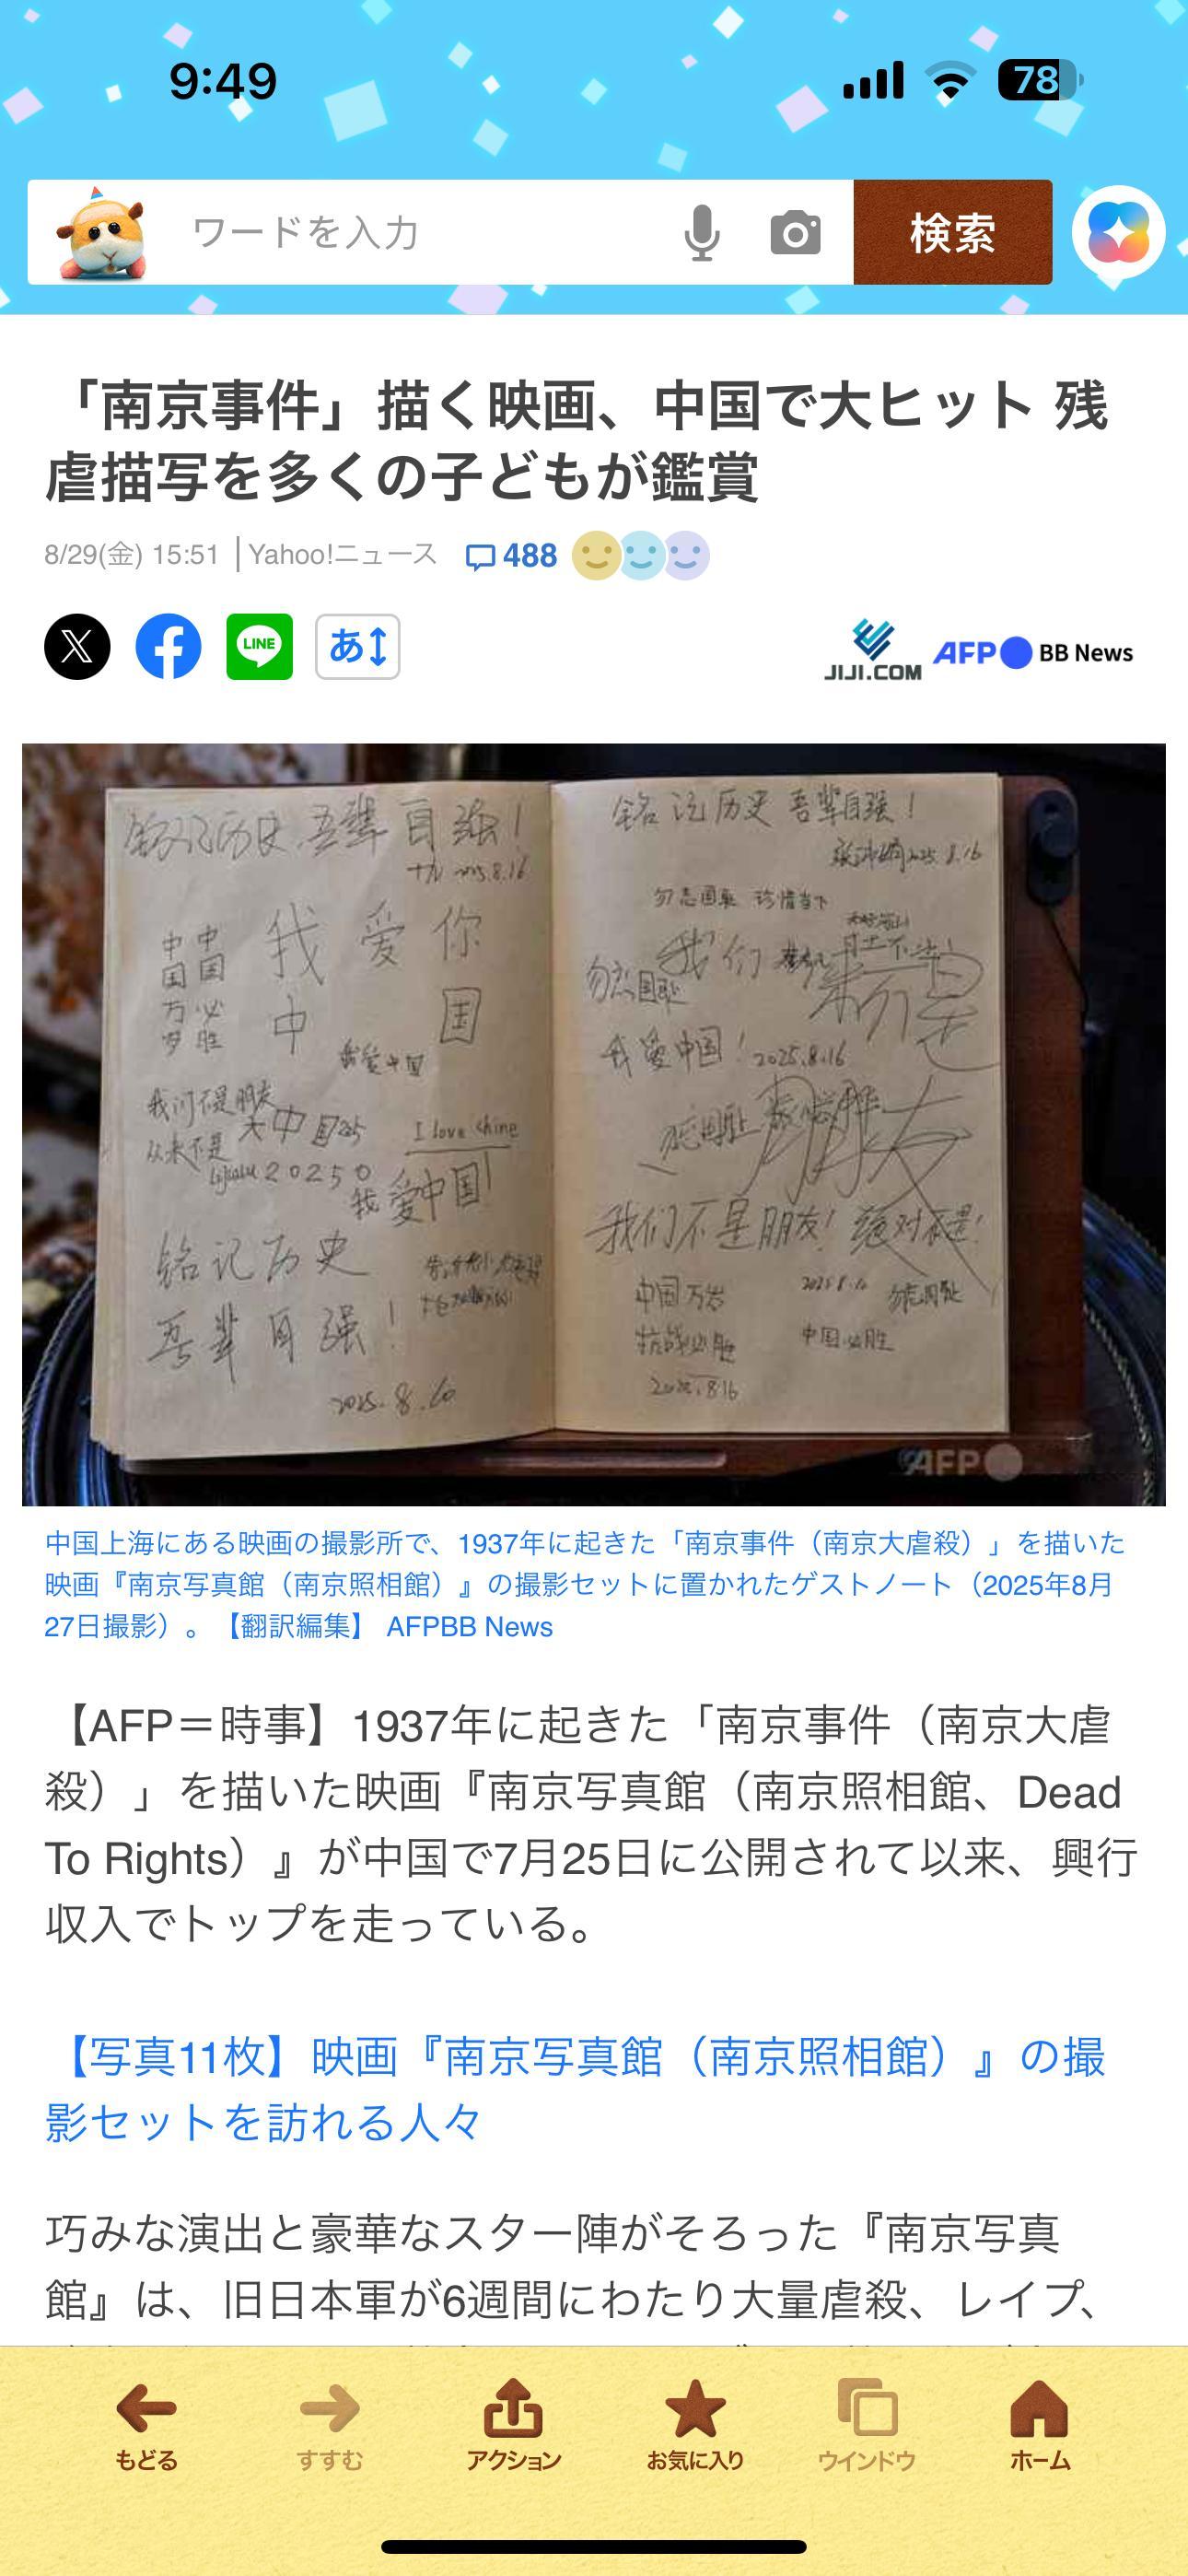 9:49
78
ワードを入力
検索
「南京事件」描く映画、中国で大ヒット 残
虐描写を多くの子どもが鑑賞
8/29(金) 15:51
Yahoo!ニュース
488
LINE
あ
JIJI.COM
AFP BB News
铭记历史 吾辈自强!
2025.8.16
中国万岁
中国必胜
我爱你
中国
我爱中国
我们不是朋友
从来不是
大中国
I love china
20250
我爱中国!
铭记历史
吾辈自强!
2025.8.
铭记历史 吾辈自强!
2025.8.16
勿忘国耻 珍惜当下
我们
勿忘国耻
我爱中国! 2025.8.16
勿忘国耻
朋友
我们不是朋友! 绝对不是!
中国万岁
勿忘国耻
抗战必胜
中国必胜
2025.8.16
AFP
中国上海にある映画の撮影所で、1937年に起きた「南京事件（南京大虐殺）」を描いた
映画『南京写真館（南京照相館）』の撮影セットに置かれたゲストノート（2025年8月
27日撮影）。【翻訳編集】 AFPBB News
【AFP＝時事】1937年に起きた「南京事件（南京大虐
殺）」を描いた映画『南京写真館（南京照相館、Dead
To Rights）』が中国で7月25日に公開されて以来、興行
収入でトップを走っている。
【写真11枚】映画『南京写真館（南京照相館）』の撮
影セットを訪れる人々
巧みな演出と豪華なスター陣がそろった『南京写真
館』は、旧日本軍が6週間にわたり大量虐殺、レイプ、
もどる
すすむ
アクション
お気に入り
ウインドウ
ホーム